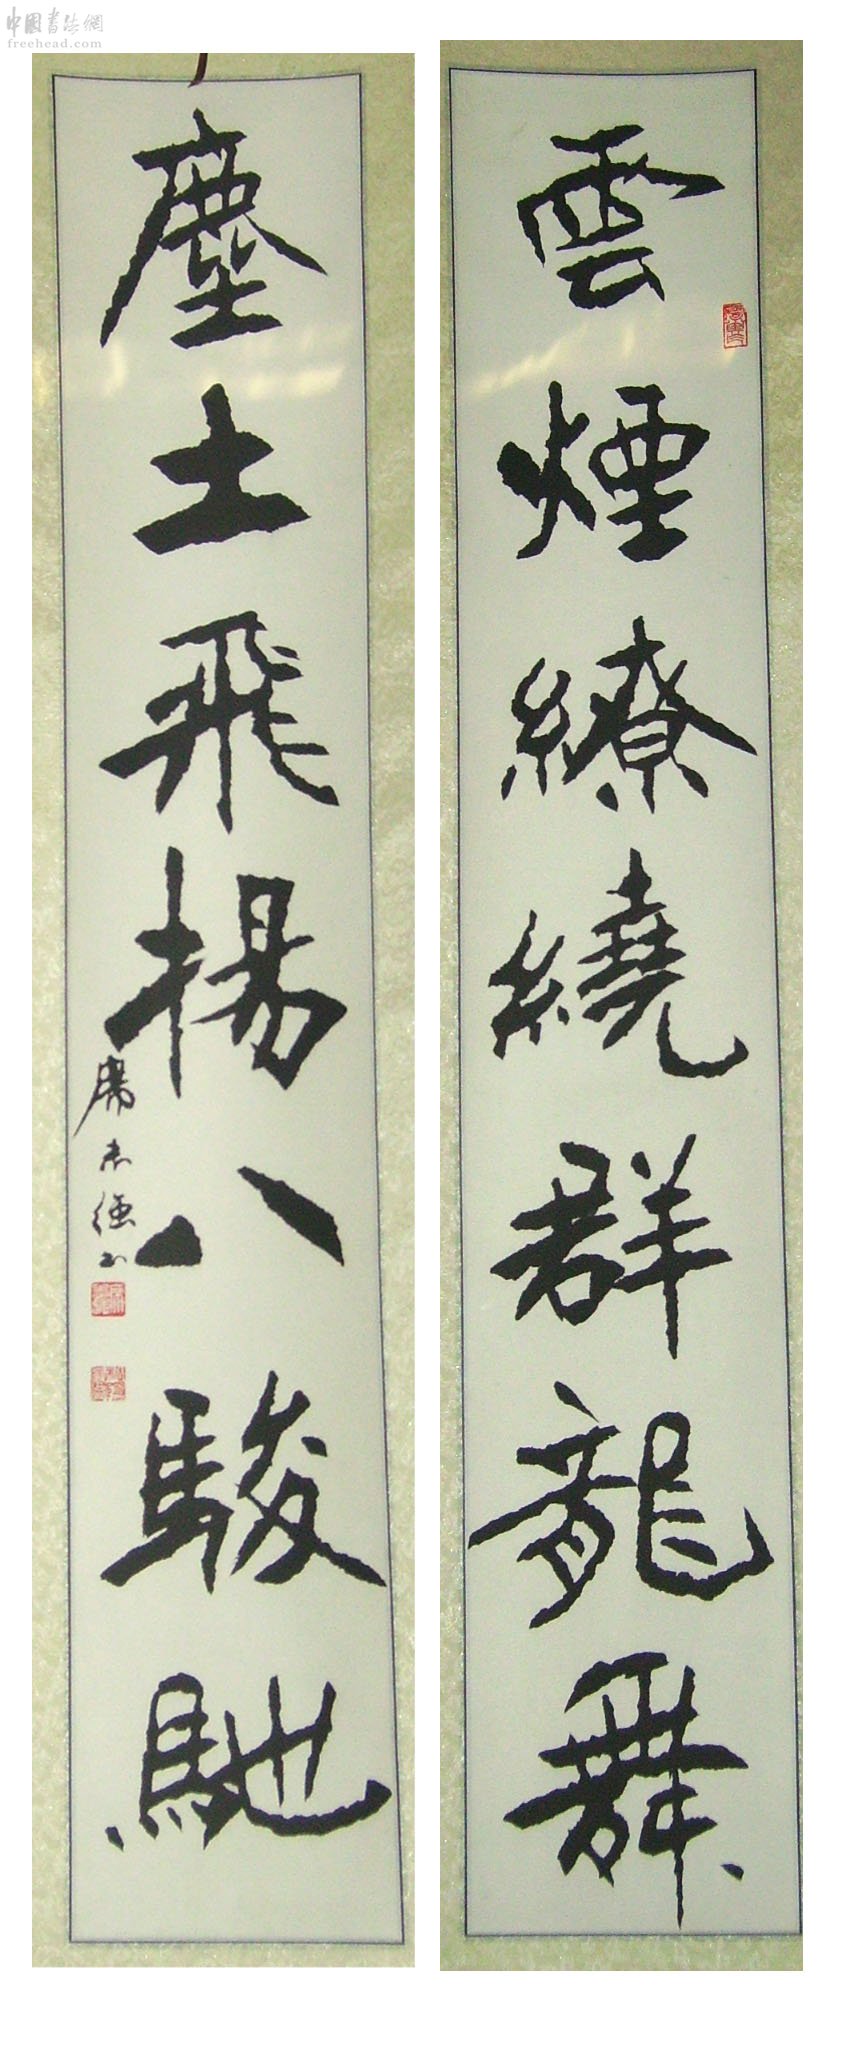 中國書法網
freehead.com
雲煙繚繞群龍舞
塵土飛揚八駿馳